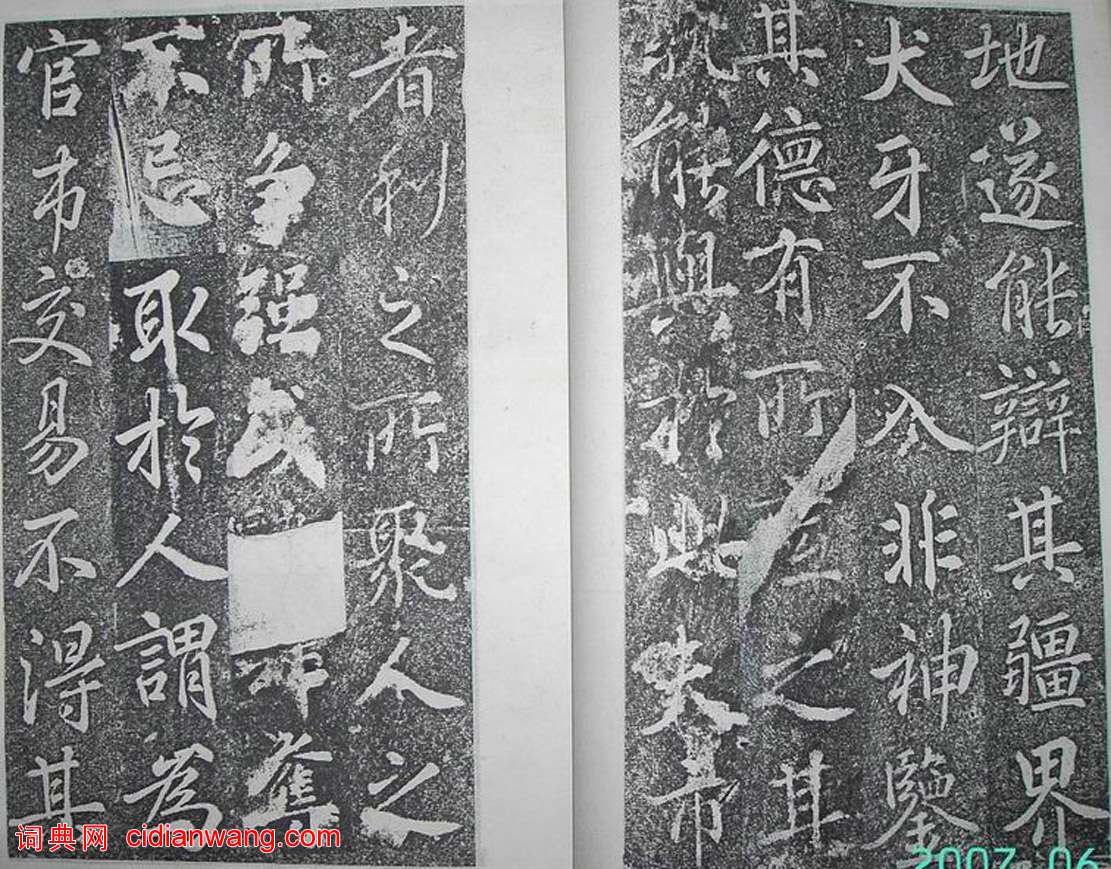 地遂能辯其疆界
犬牙不入非神鑒
其德有所至之其
孰能與於此夫市
者利之所聚人之
所争强民奪
不忌取於人謂為
官市交易不得其
词典网 cidianwang.com
2007 06